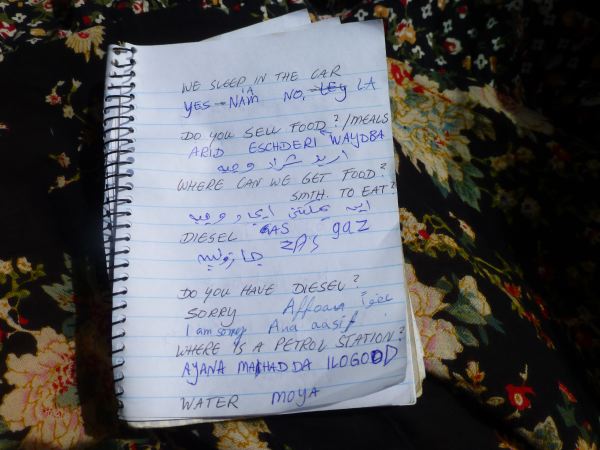 WE SLEEP IN THE CAR
YES - NAM IA NO, LEY LA
DO YOU SELL FOOD? / MEALS
ARID ESCHDERI WAYDBA
اريد شراء وجبه
WHERE CAN WE GET FOOD?
SMTH. TO EAT?
وجبه
DIESEL GAS gaz
ZAS
DO YOU HAVE DIESEL?
SORRY Affoan عفواً
I am sorry Ana aasif
WHERE IS A PETROL STATION?
AYANA MAHADDA ILOGOOD
WATER MOYA